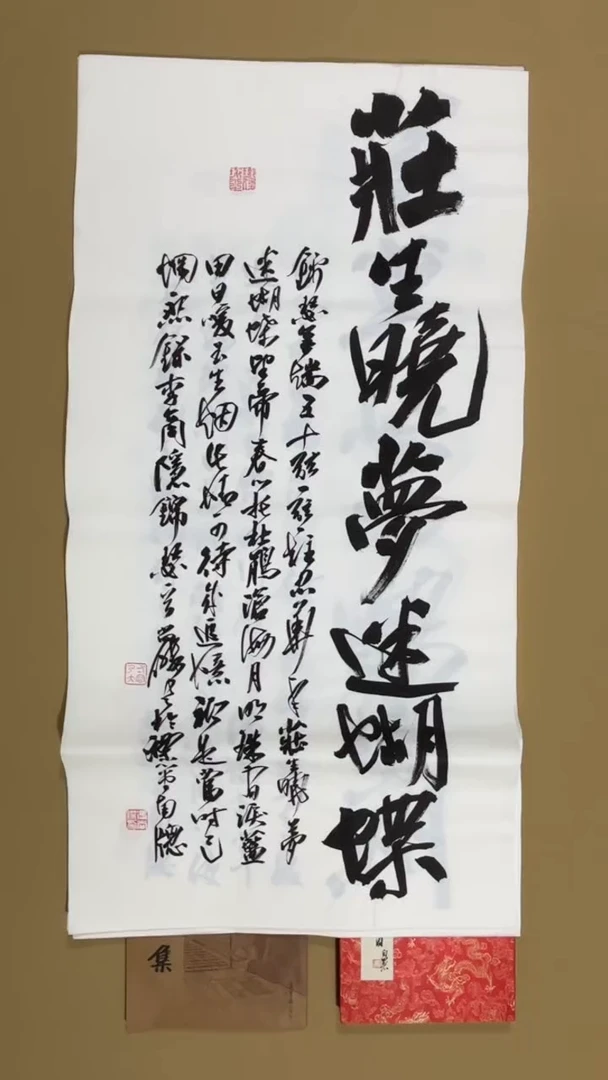 莊生曉夢迷蝴蝶
錦瑟無端五十弦一弦一柱思華年莊生曉夢
迷蝴蝶望帝春心托杜鵑滄海月明珠有淚藍
田日暖玉生烟此情可待成追憶祇是當時已
惘然錄李商隱錦瑟
集